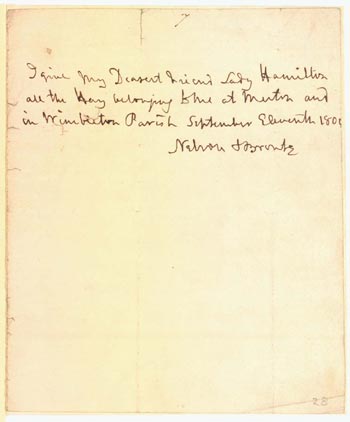 I give my Dearest Friend Lady Hamilton
all the Hay belonging to me at Merton and
in Wimbleton Parish September Eleventh 180
Nelson & Bronte
28